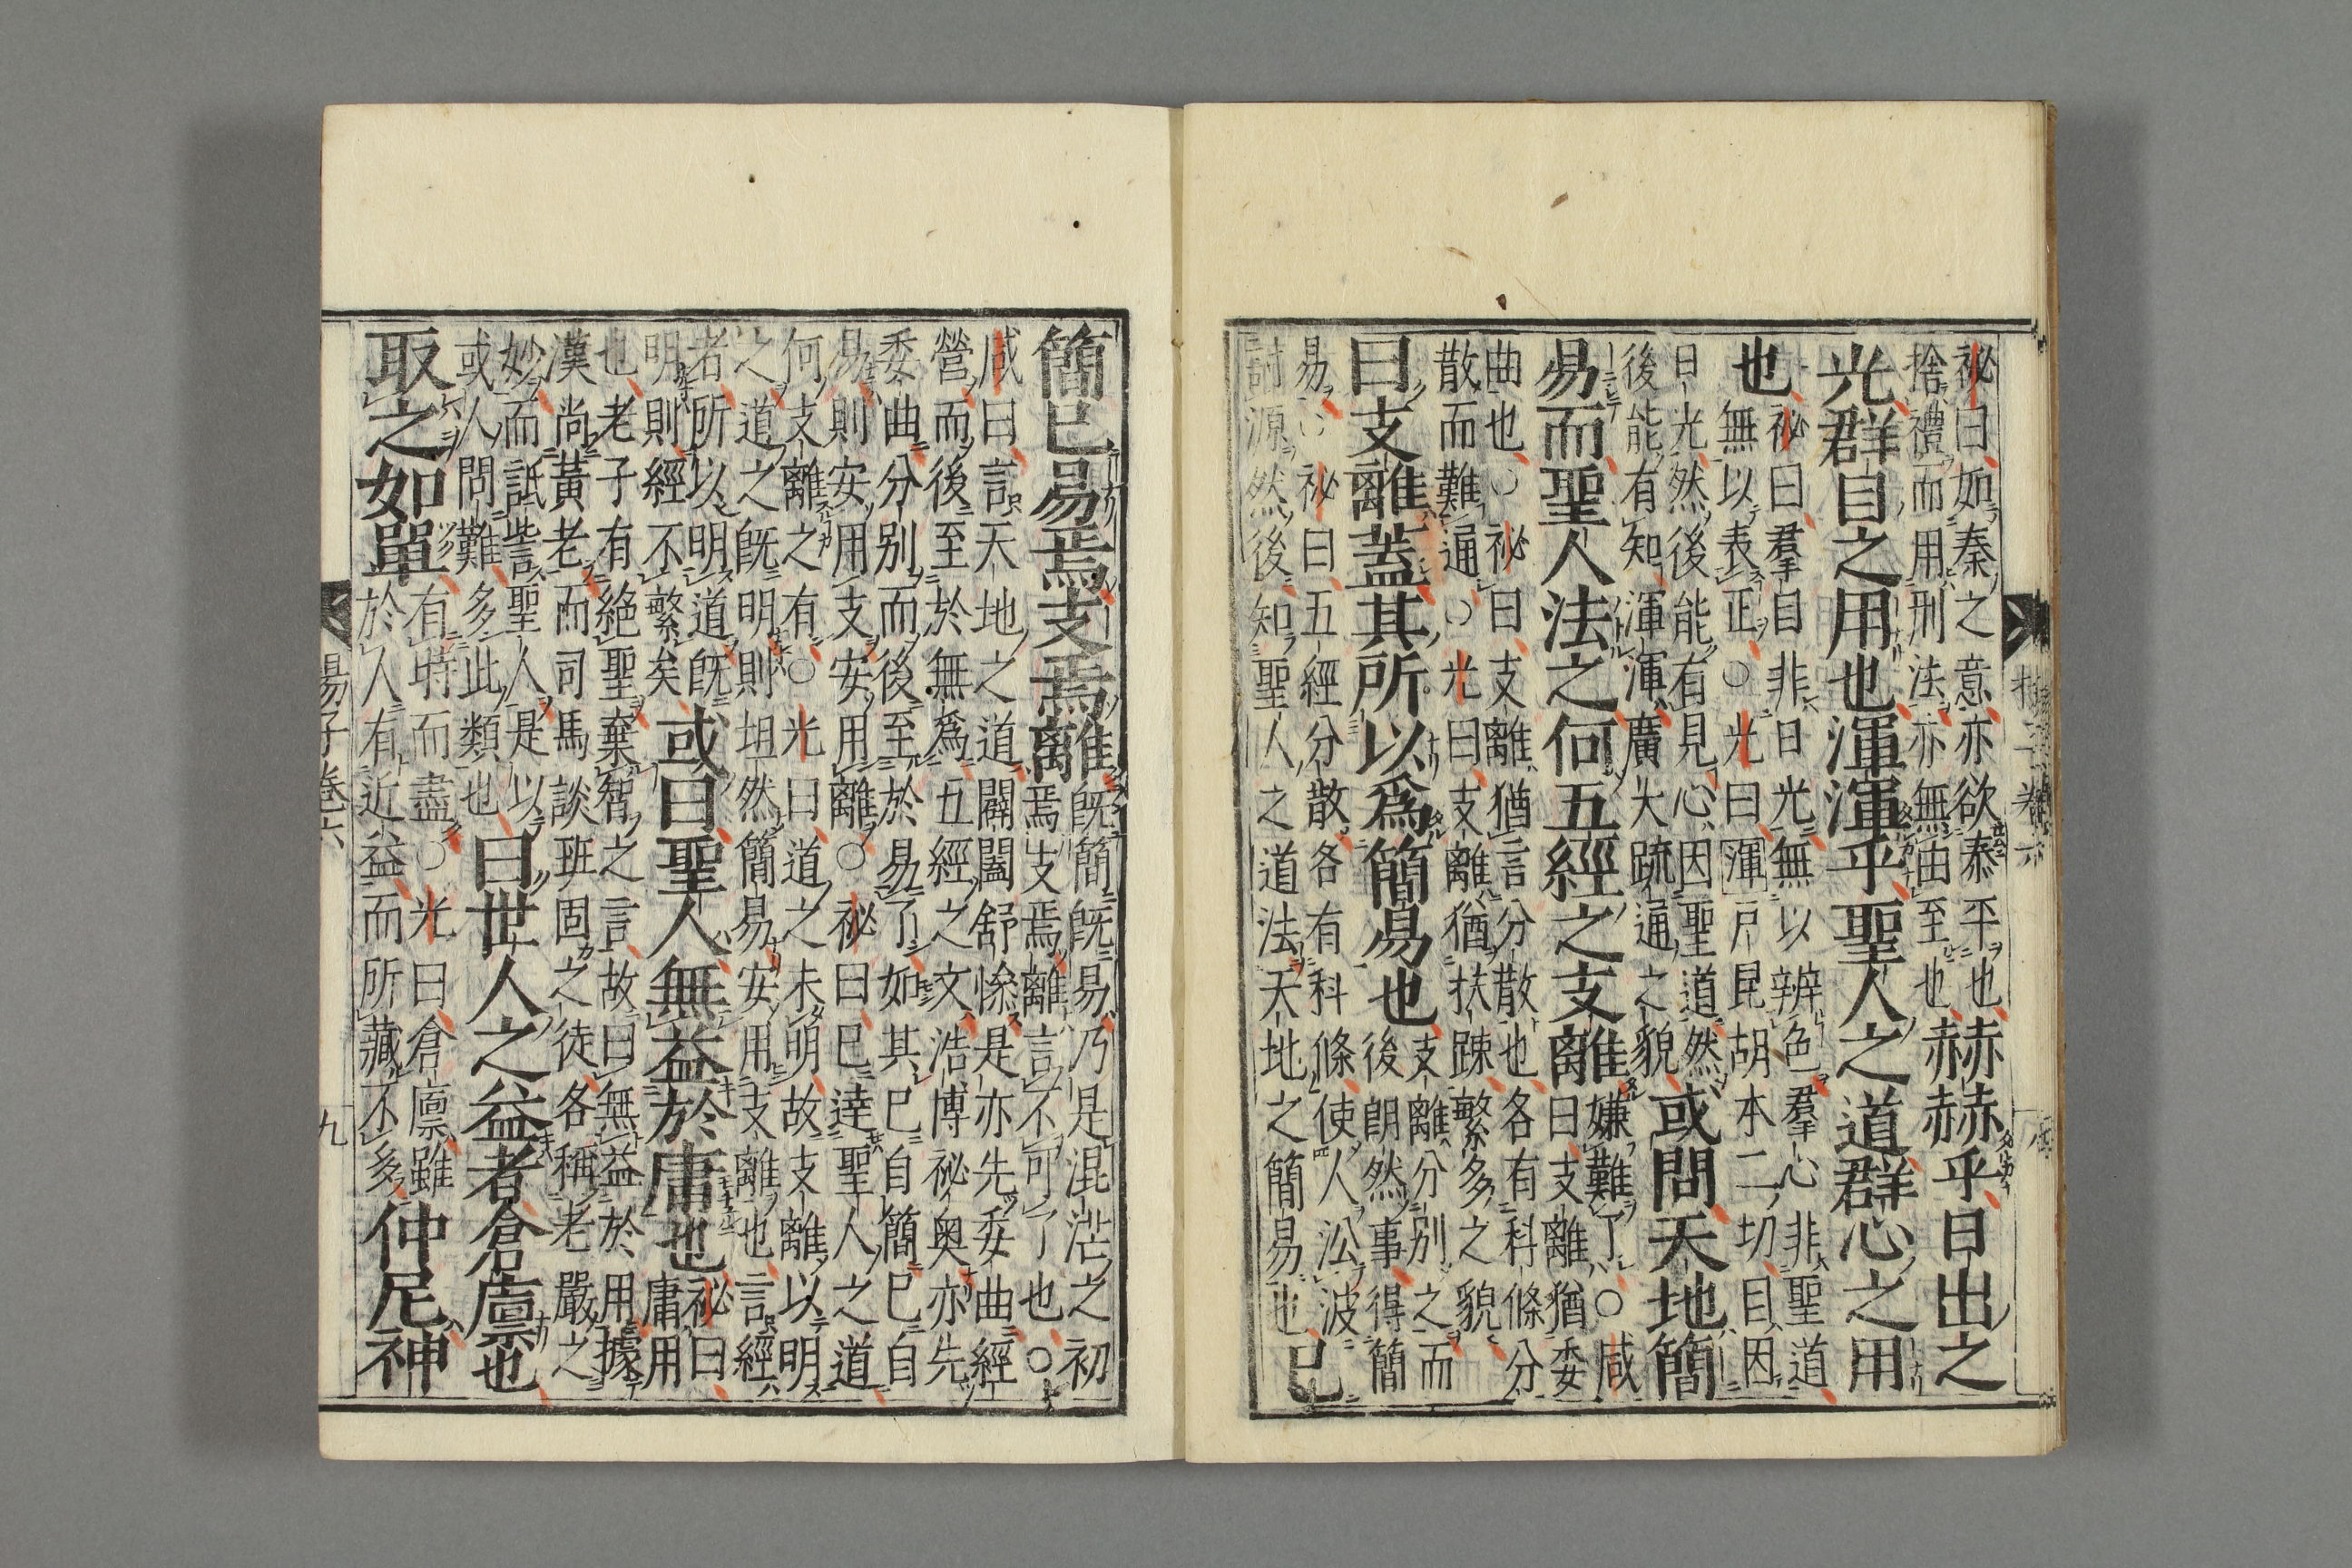 祕曰如秦之意亦欲泰平也
捨禮而用刑法亦無由至也
赫赫乎日出之
光群目之用也渾渾乎聖人之道群心之用
也
祕曰羣目非日光無以辨色羣心非聖道
無以表正○光曰渾戸昆胡本二切目因
日光然後能有見心因聖道然
後能有知渾渾廣大疏通之貌
或問天地簡
易而聖人法之何五經之支離
嫌難了○咸
曰支離猶委
曲也○祕曰支離猶言分散也各有科條分
散而難通○光曰支離猶扶踈繁多之貌
曰支離蓋其所以爲簡易也
支離分别之而
後朗然事得簡
易○祕曰五經分散各有科條使人㳂波
討源然後知聖人之道法天地之簡易也
已
簡已易焉支焉離
既簡既易乃是混茫之初
焉支焉離言不可了也○
咸曰言天地之道闢闔舒慘是亦先委曲經
營而後至於無爲五經之文浩博祕奥亦先
委曲分别而後至於易了如其已自簡已自
易則安用支安用離○祕曰已達聖人之道
何支離之有○光曰道之未明故支離以明
之道之既明則坦然簡易安用支離也言經
者所以明道既
明則經不繁矣
或曰聖人無益於庸也
祕曰
庸用
也老子有絶聖棄智之言故曰無益於用據
漢尚黃老而司馬談班固之徒各稱老嚴之
妙而詆訾聖人是以
或人問難多此類也
曰世人之益者倉廩也
取之如單
有時而盡○光曰倉廩雖
於人有近益而所藏不多
仲尼神
揚子卷六
九